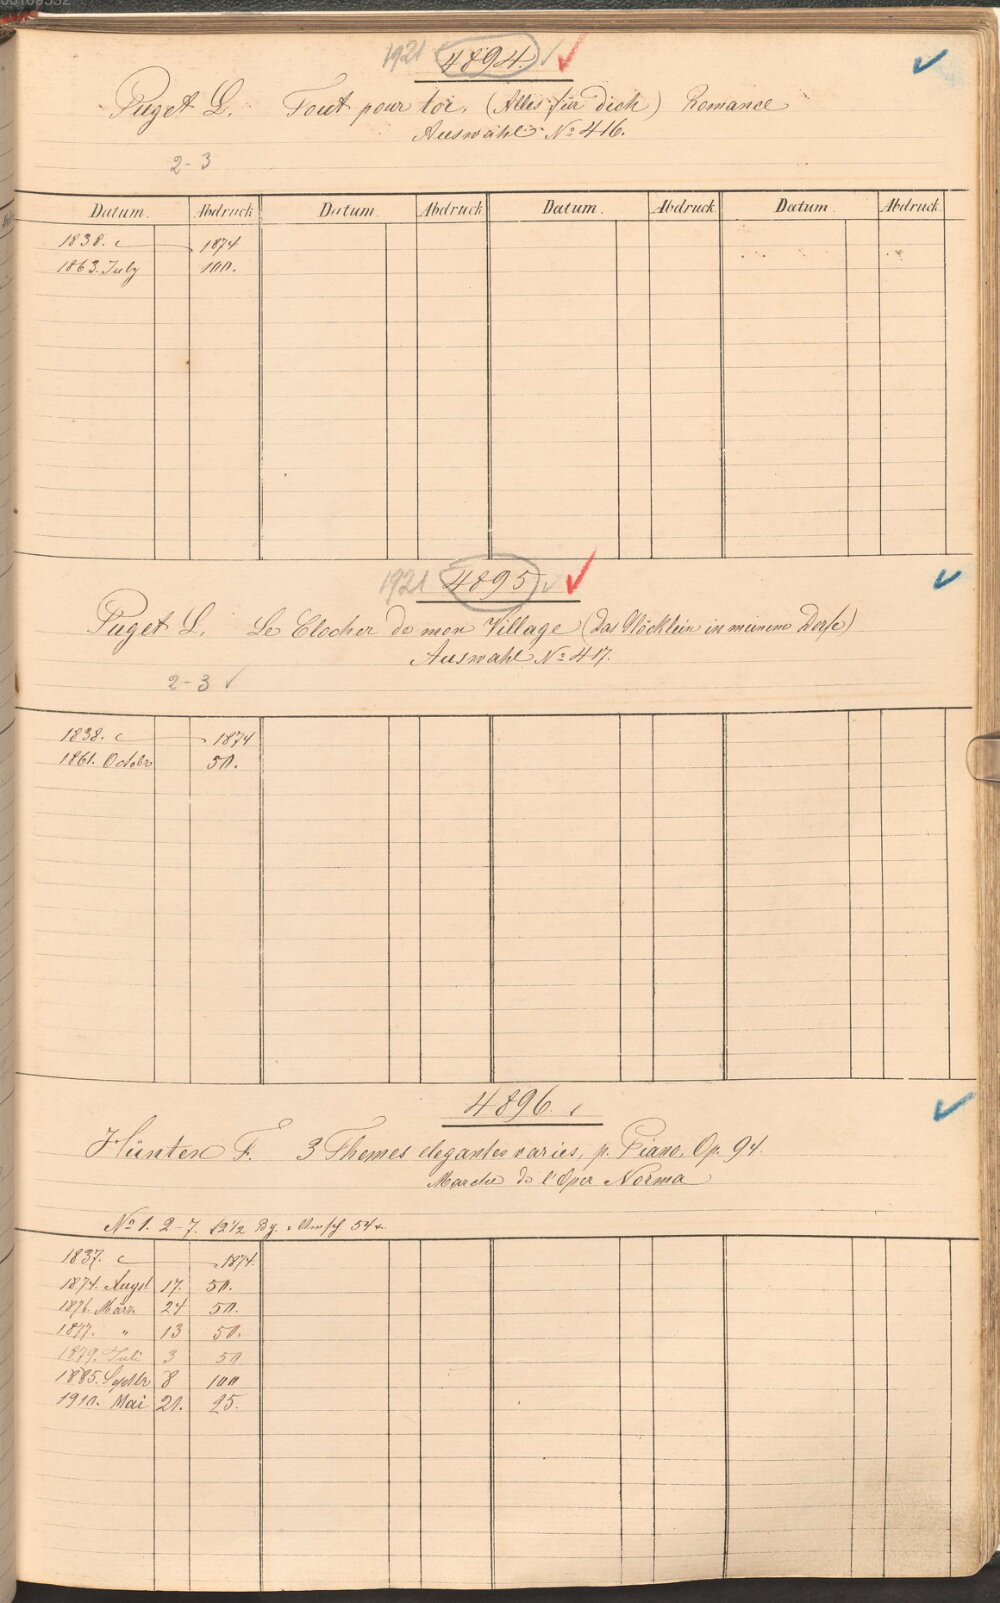 1921 4894.
Puget L. Tout pour toi. (Alles für dich) Romance
Auswahl No 416.
2-3
Datum. Abdruck Datum. Abdruck Datum. Abdruck Datum. Abdruck
1838. c 1874
1863. July 100.
1921 4895
Puget L. Le Clocher de mon Village (das Glöcklein in meinem Dorfe)
Auswahl No 417.
2-3
1838. c 1874
1861. Octobr 50.
4896.
Hünten F. 3 Themes elegantes varies, p. Piano. Op. 94.
Marche de l'Oper Norma
No 1. 2-7. 54
1837. c 1874.
1874. Augst 17. 50.
1876. März 24 50.
1877. " 13 50.
1879. Juli 3 50
1885. Septbr 8 100
1910. Mai 21. 25.